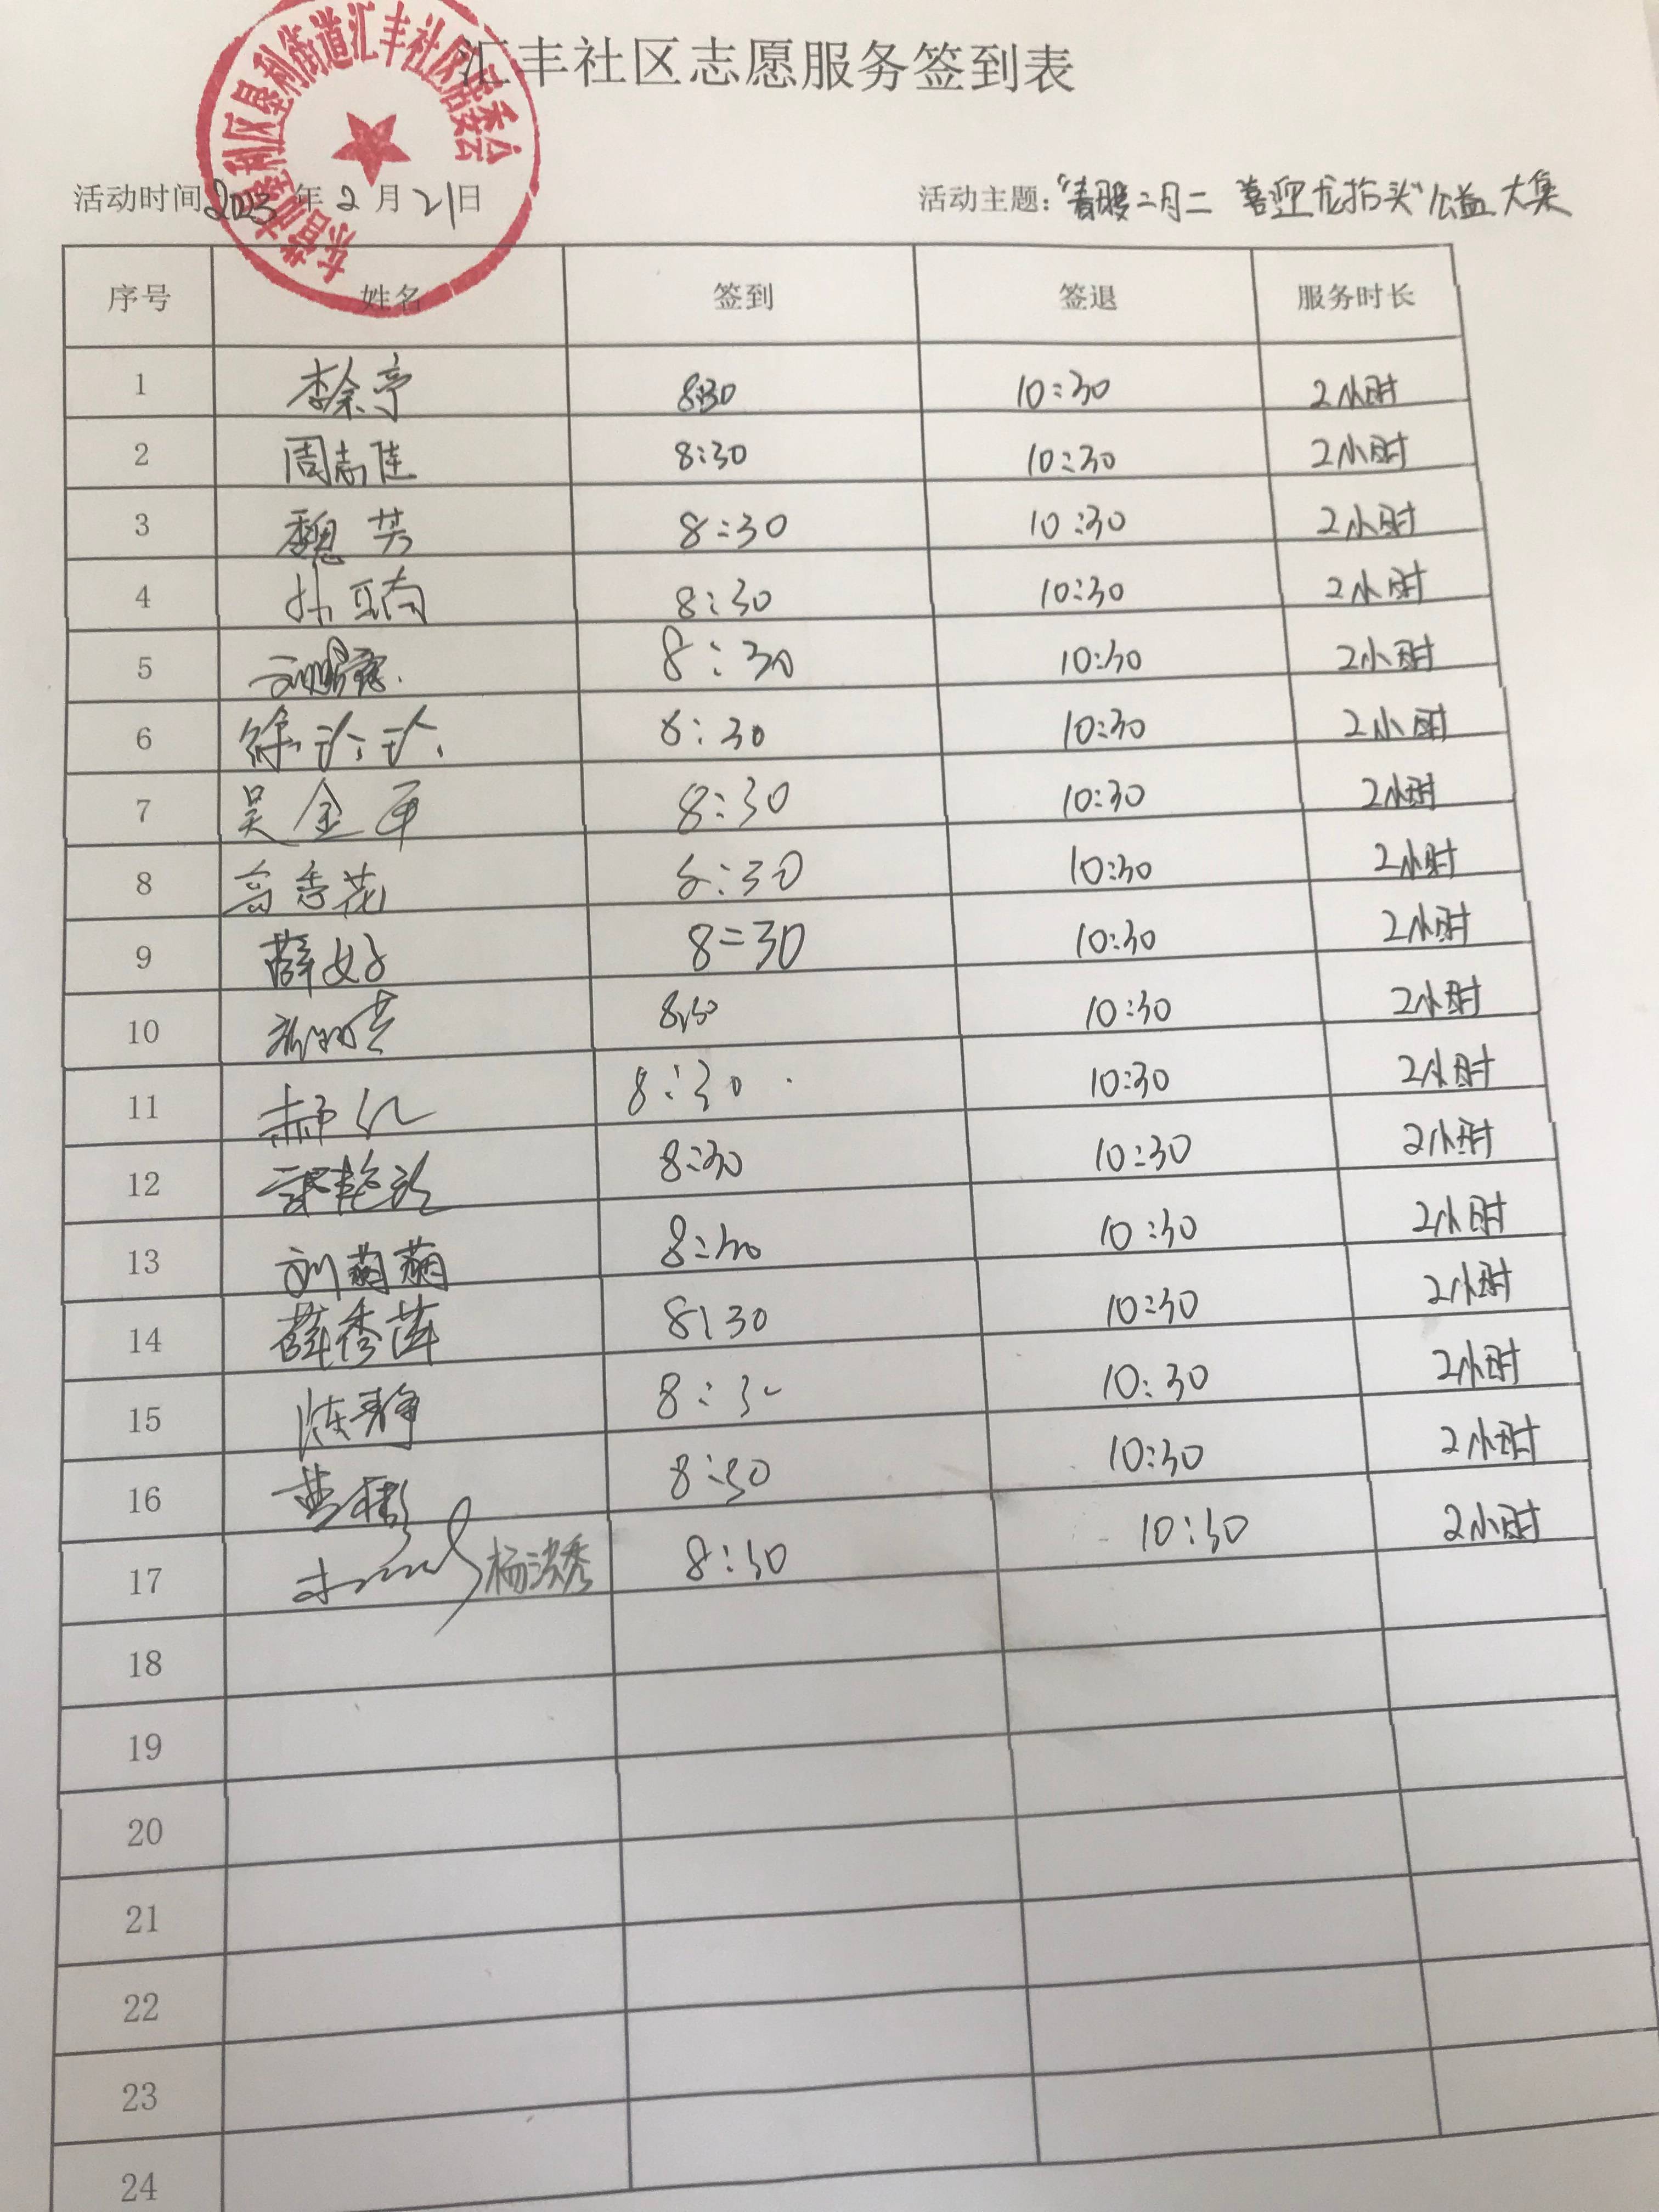 汇丰社区志愿服务签到表
东营市垦利区垦利街道汇丰社区居委会
活动时间2023年2月21日 活动主题：“春暖二月二 喜迎龙抬头”公益大集
序号 姓名 签到 签退 服务时长
1 李余亭 8:30 10:30 2小时
2 周志佳 8:30 10:30 2小时
3 魏芳 8:30 10:30 2小时
4 8:30 10:30 2小时
5 8:30 10:30 2小时
6 徐 8:30 10:30 2小时
7 吴金平 8:30 10:30 2小时
8 高秀花 8:30 10:30 2小时
9 薛好 8:30 10:30 2小时
10 8:30 10:30 2小时
11 8:30 10:30 2小时
12 8:30 10:30 2小时
13 刘萌萌 8:30 10:30 2小时
14 薛秀萍 8:30 10:30 2小时
15 陈静 8:30 10:30 2小时
16 8:30 10:30 2小时
17 杨洪秀 8:30 10:30 2小时
18
19
20
21
22
23
24